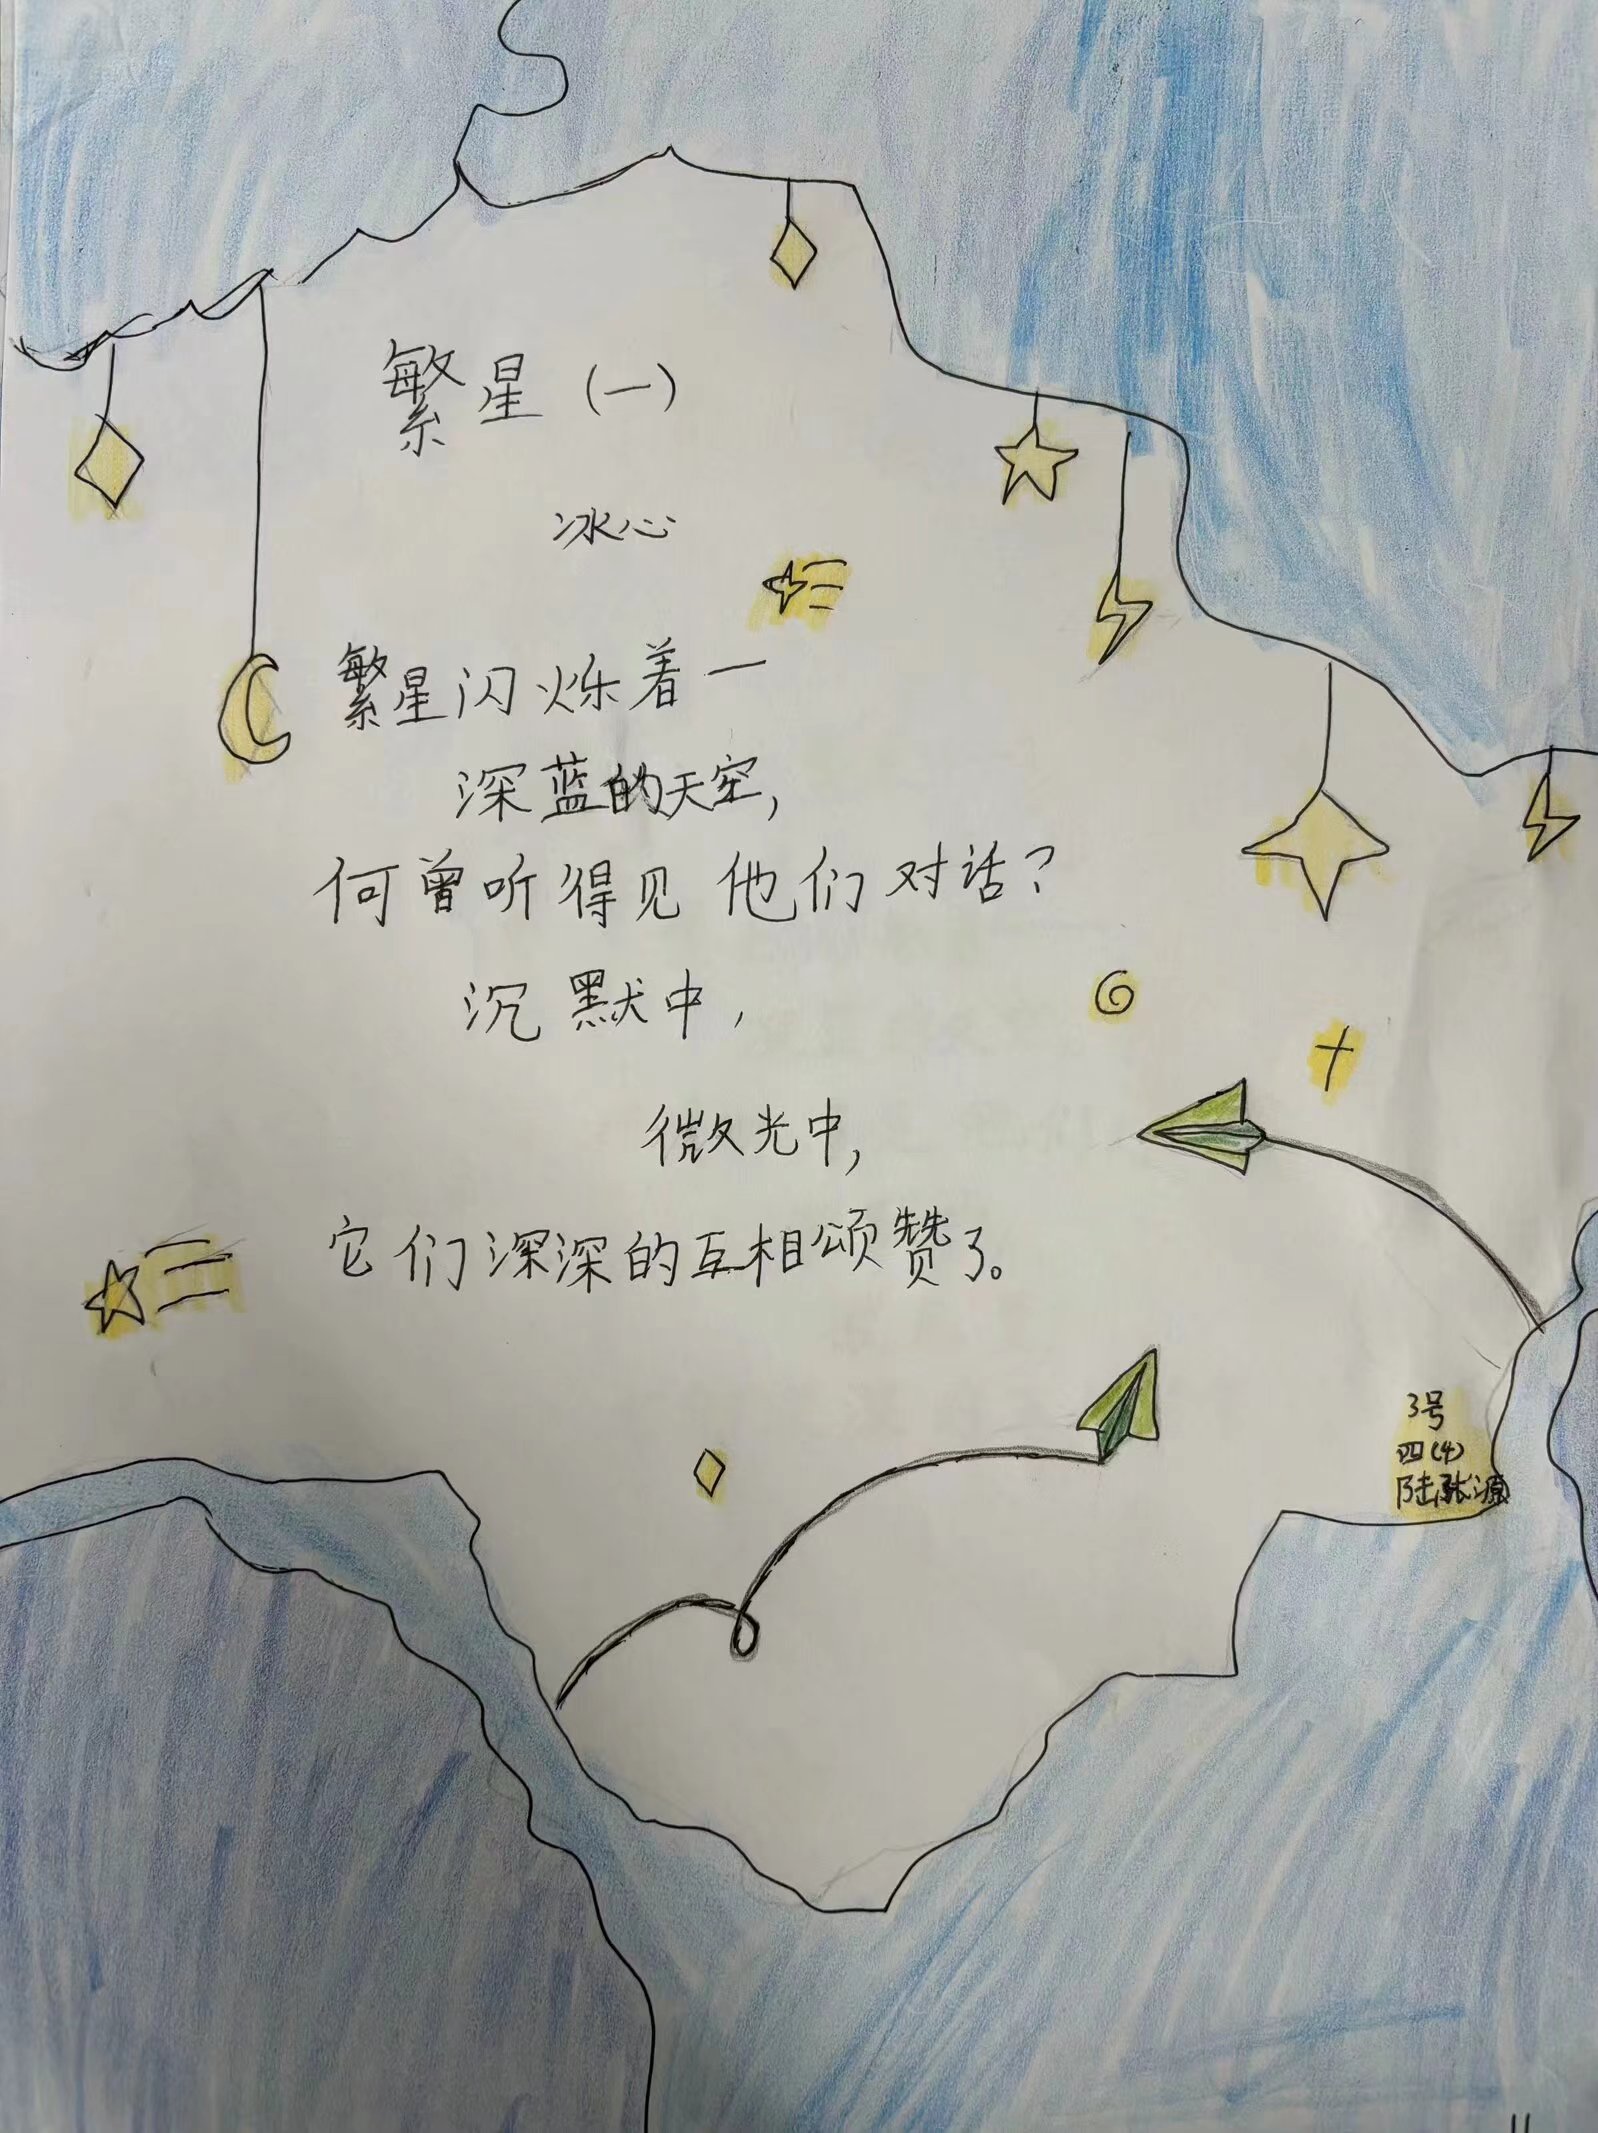 繁星（一）
冰心
繁星闪烁着一
深蓝的天空，
何曾听得见他们对话？
沉默中，
微光中，
它们深深的互相颂赞了。
3号
四(4)
陆张源